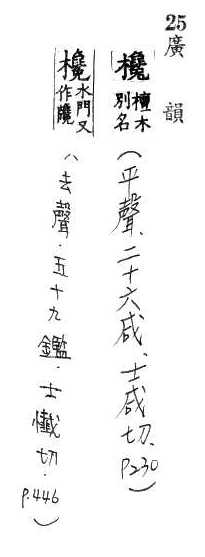 25 廣韻
欃 檀木別名 （平聲．二十六咸、士咸切．P.230）
欃 水門又作䡪
（去聲．五十九鑑．士懺切．P.446）